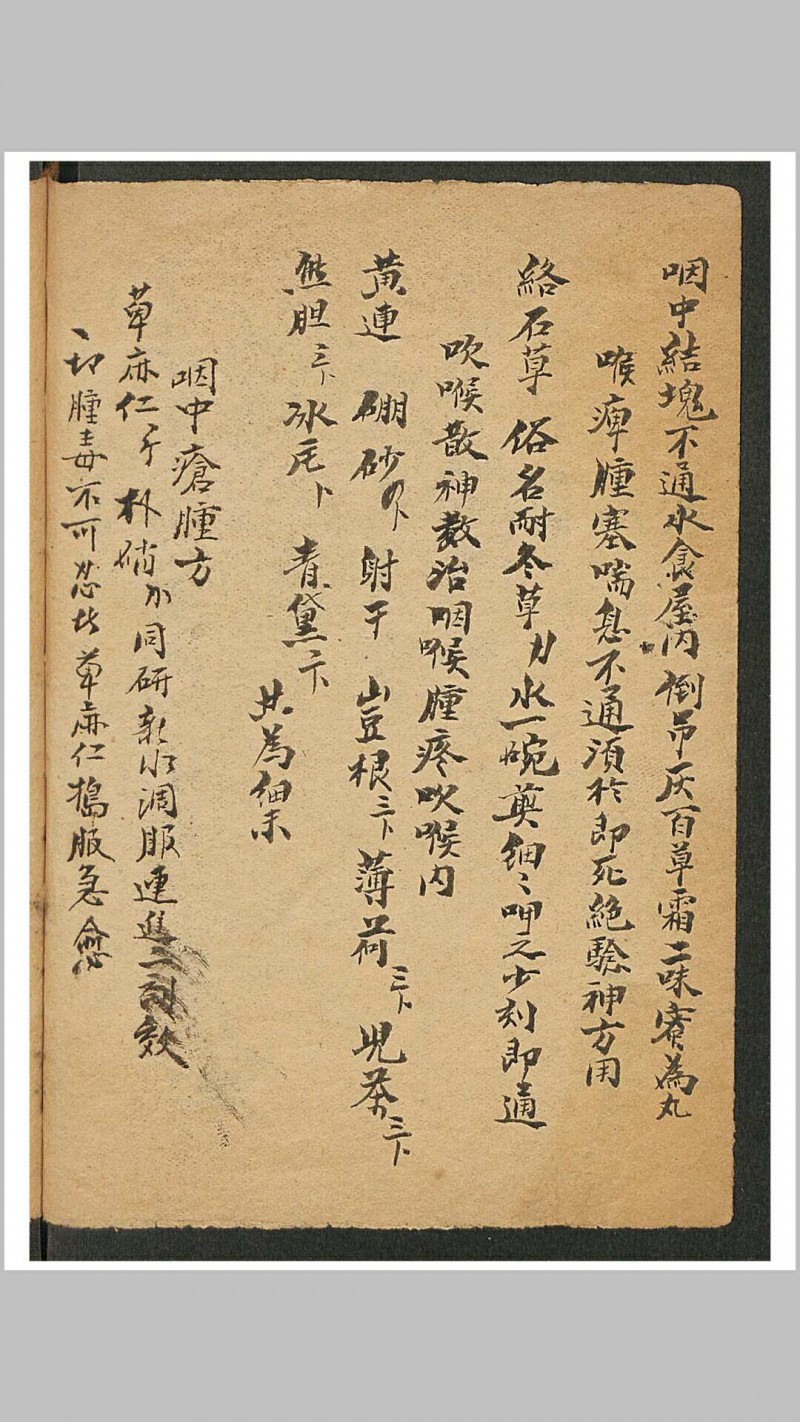 咽中結塊不通水食屋內倒吊灰百草霜二味蜜為丸
喉痺腫塞喘息不通須於即死絕驗神方用
絡石草 俗名耐冬草 水一碗 細〻呷之少刻即通
吹喉散神散治咽喉腫疼吹喉內
黃連 硼砂 射干 山豆根 三卜 薄荷 三卜 児茶 三卜
熊胆 三卜 冰 卜 青黛 二卜
共為細末
咽中瘡腫方
草麻仁 朴硝 同研新水調服連進二劑效
一切腫毒不可忍 草麻仁搗服急愈